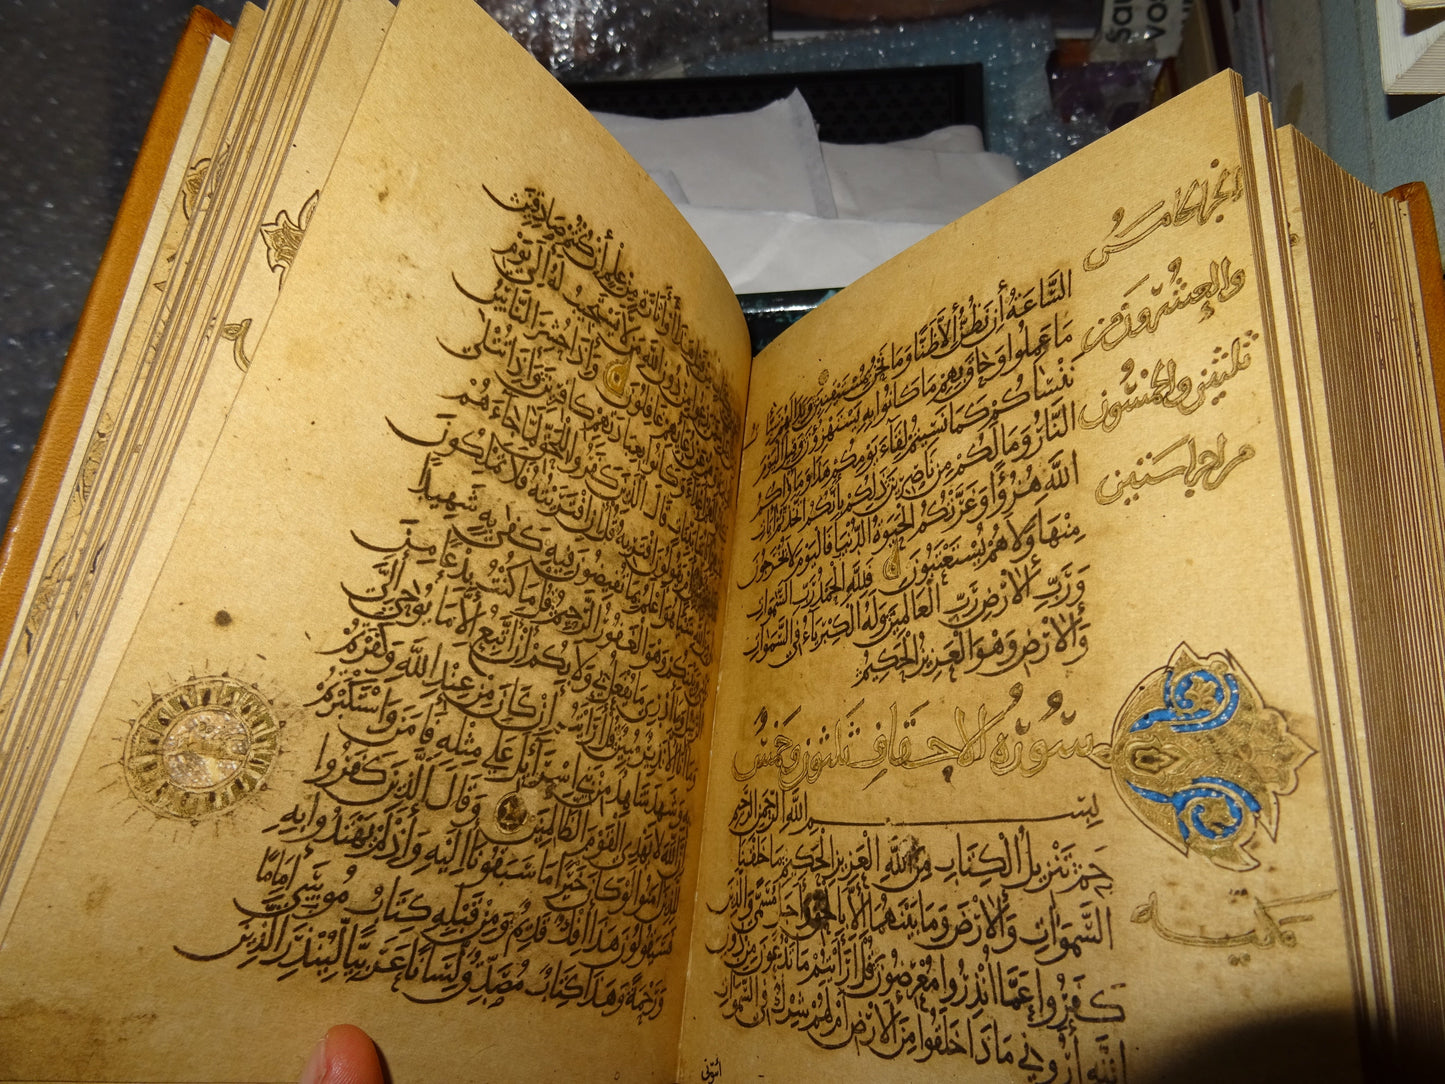 الجزء الخامس
والعشرون من
ثلثين والخمسون
من أجزاء ستين
السَّاعَةُ إِن نَّظُنُّ إِلَّا ظَنًّا وَمَا نَحْنُ بِمُسْتَيْقِنِينَ وَبَدَا لَهُمْ
مَا عَمِلُوا وَحَاقَ بِهِم مَّا كَانُوا بِهِ يَسْتَهْزِؤُنَ وَقِيلَ الْيَوْمَ
نَنْسَاكُمْ كَمَا نَسِيتُمْ لِقَاءَ يَوْمِكُمْ هَذَا وَمَأْوَاكُمُ
النَّارُ وَمَا لَكُمْ مِن نَاصِرِينَ ذَلِكُمْ بِأَنَّكُمُ اتَّخَذْتُمْ آيَاتِ
اللَّهِ هُزُؤًا وَغَرَّتْكُمُ الْحَيَوةُ الدُّنْيَا فَالْيَوْمَ لَا يُخْرَجُونَ
مِنْهَا وَلَا هُمْ يُسْتَعْتَبُونَ فَلِلَّهِ الْحَمْدُ رَبِّ السَّمَوَاتِ
وَرَبِّ الْأَرْضِ رَبِّ الْعَالَمِينَ وَلَهُ الْكِبْرِيَاءُ فِي السَّمَوَاتِ
وَالْأَرْضِ وَهُوَ الْعَزِيزُ الْحَكِيمُ
سُورَةُ الاحقاف ثلثون وخمسٌ
مكية
بِسْمِ اللَّهِ الرَّحْمَنِ الرَّحِيمِ
حم تَنْزِيلُ الْكِتَابِ مِنَ اللَّهِ الْعَزِيزِ الْحَكِيمِ مَا خَلَقْنَا
السَّمَوَاتِ وَالْأَرْضَ وَمَا بَيْنَهُمَا إِلَّا بِالْحَقِّ وَأَجَلٍ مُسَمًّى وَالَّذِينَ
كَفَرُوا عَمَّا أُنْذِرُوا مُعْرِضُونَ قُلْ أَرَأَيْتُمْ مَا تَدْعُونَ مِنْ دُونِ
اللَّهِ أَرُونِي مَاذَا خَلَقُوا مِنَ الْأَرْضِ أَمْ لَهُمْ شِرْكٌ فِي السَّمَوَاتِ
أَوْ أَثَارَةٍ مِنْ عِلْمٍ إِنْ كُنْتُمْ صَادِقِينَ
مِنْ دُونِ اللَّهِ مَنْ لَا يَسْتَجِيبُ لَهُ إِلَى يَوْمِ
غَافِلُونَ وَإِذَا حُشِرَ النَّاسُ
وَكَانُوا بِعِبَادَتِهِمْ كَافِرِينَ وَإِذَا تُتْلَى
قَالَ الَّذِينَ كَفَرُوا لِلْحَقِّ لَمَّا جَاءَهُمْ
يَقُولُونَ افْتَرَاهُ قُلْ إِنِ افْتَرَيْتُهُ فَلَا تَمْلِكُونَ
هُوَ أَعْلَمُ بِمَا تُفِيضُونَ فِيهِ كَفَى بِهِ شَهِيدًا
وَهُوَ الْغَفُورُ الرَّحِيمُ قُلْ مَا كُنْتُ بِدْعًا مِنَ
وَمَا أَدْرِي مَا يُفْعَلُ بِي وَلَا بِكُمْ إِنْ أَتَّبِعُ إِلَّا مَا يُوحَى إِلَيَّ
وَمَا أَنَا إِلَّا نَذِيرٌ مُبِينٌ قُلْ أَرَأَيْتُمْ إِنْ كَانَ مِنْ عِنْدِ اللَّهِ وَكَفَرْتُمْ
بِهِ وَشَهِدَ شَاهِدٌ مِنْ بَنِي إِسْرَائِيلَ عَلَى مِثْلِهِ فَآمَنَ وَاسْتَكْبَرْتُمْ
إِنَّ اللَّهَ لَا يَهْدِي الْقَوْمَ الظَّالِمِينَ وَقَالَ الَّذِينَ كَفَرُوا
لِلَّذِينَ آمَنُوا لَوْ كَانَ خَيْرًا مَا سَبَقُونَا إِلَيْهِ وَإِذْ لَمْ يَهْتَدُوا بِهِ
فَسَيَقُولُونَ هَذَا إِفْكٌ قَدِيمٌ وَمِنْ قَبْلِهِ كِتَابُ مُوسَى إِمَامًا
وَرَحْمَةً وَهَذَا كِتَابٌ مُصَدِّقٌ لِسَانًا عَرَبِيًّا لِيُنْذِرَ الَّذِينَ